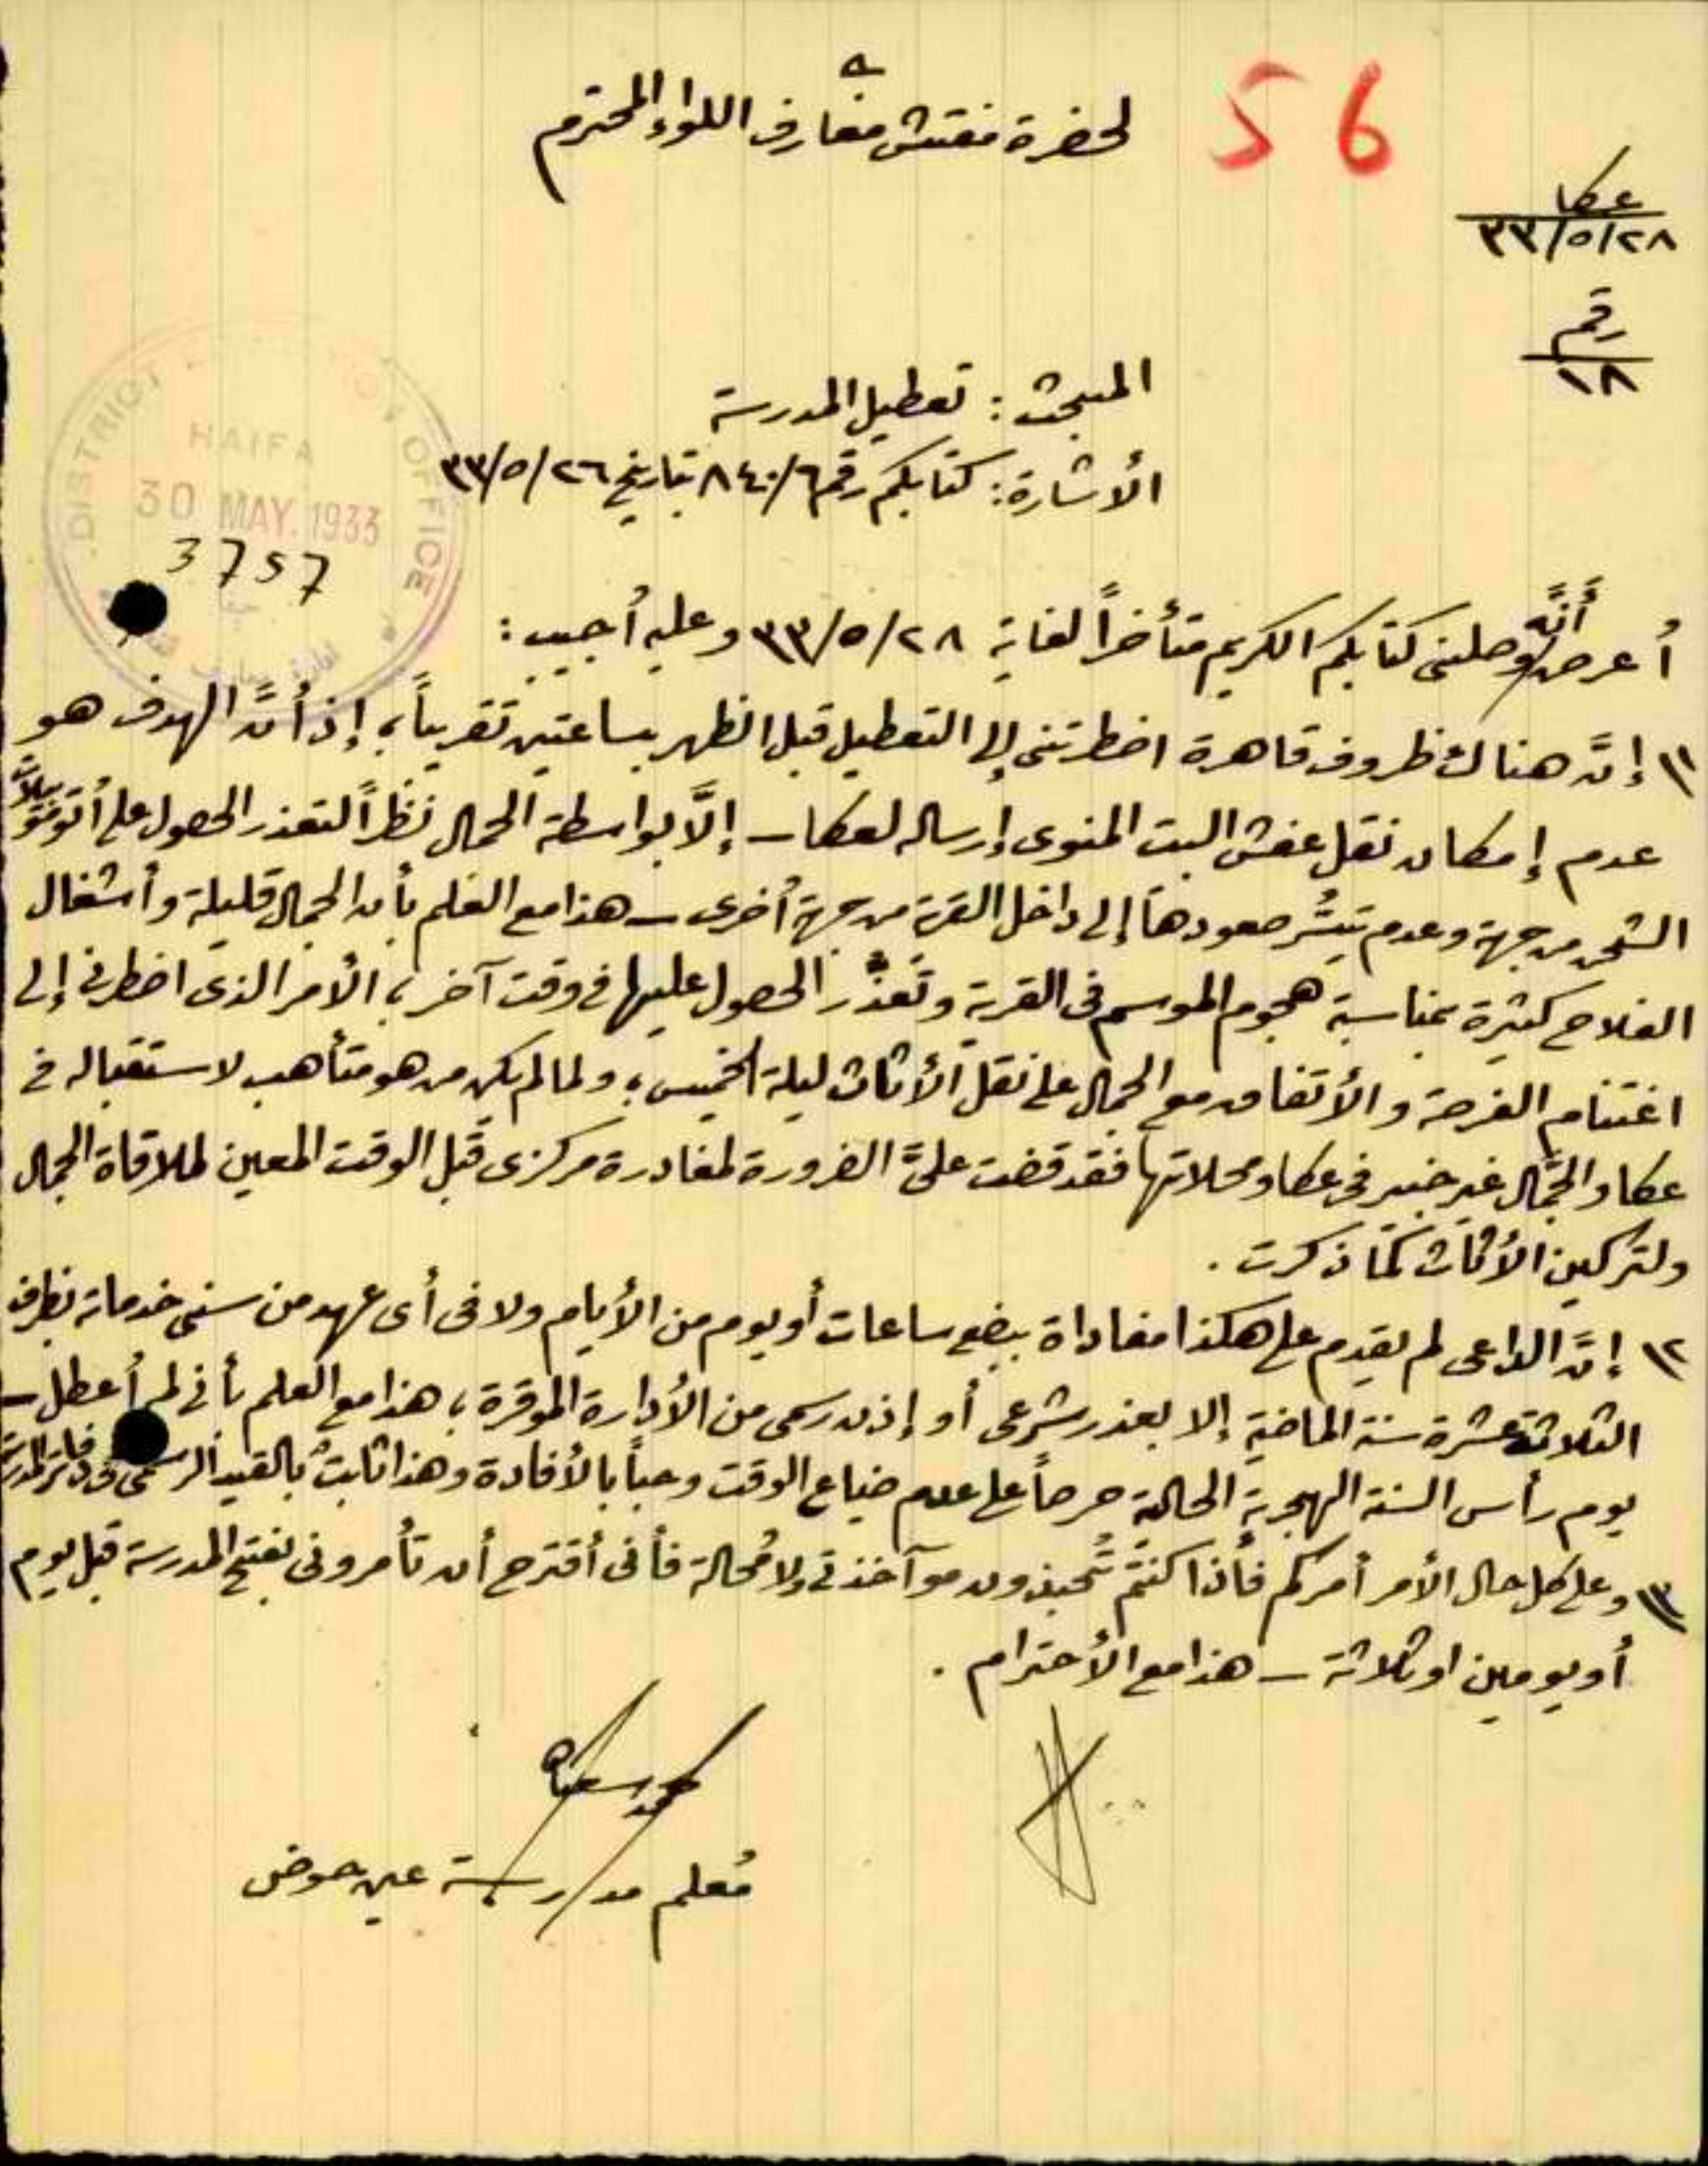 56
لحضرة مفتش معارف اللواء المحترم
عكا
٣٣/٥/٢٨
رقم
١٨
المبحث: تعطيل المدرسة
الأشارة: كتابكم رقم ٨٤٠/٦ بتاريخ ٣٣/٥/٢٦
DISTRICT OFFICE
HAIFA
30 MAY. 1933
3757
أعرض أنَّه وصلني كتابكم الكريم متأخراً لغاية ٣٣/٥/٢٨ وعليه أجيب:
١) إنَّ هناك ظروف قاهرة اضطرتني إلى التعطيل قبل الظهر بساعتين تقريباً، إذ أنَّ الهدف هو
عدم إمكان نقل عفش البيت المنوى إرساله لعكا – إلَّا بواسطة الجمال نظراً لتعذر الحصول على
الشحن من جهة وعدم تيسُّر صعودها إلى داخل القرية من جهة أخرى – هذا مع العلم بأن الجمال قليلة وأشغال
الفلاح كثيرة بمناسبة هجوم الموسم في القرية وتعذّر الحصول عليها في وقت آخر، الأمر الذى اضطرني إلى
اغتنام الفرصة والأتفاق مع الجمال على نقل الأثاث ليلة الخميس، ولما لم يكن من هو متأهب لاستقباله في
عكا والجمَّال غير خبير في عكا ومحلاتها فقد قضت علىَّ الضرورة لمغادرة مركزى قبل الوقت المعين لملاقاة الجمال
ولتركين الأثاث كما ذكرت.
٢) إنَّ الداعى لم يقدم على هكذا مغاداة ببضع ساعات أو يوم من الأيام ولا في أى عهد من سنى خدماته بظرف
الثلاثة عشرة سنة الماضية إلا بعذر شرعى أو إذن رسمى من الأدارة الموقرة، هذا مع العلم بأني لم أعطل –
يوم رأس السنة الهجرية الحالية حرصاً على عدم ضياع الوقت وحباً بالأفادة وهذا ثابت بالقيد الرسمى
٣) وعلى كل حال الأمر أمركم فأذا كنتم تُحبذون موآخذتي ولا مُحالة فأني أقترح أن تأمروني بفتح المدرسة قبل يوم
أو يومين او ثلاثة – هذا مع الأحترام.
مُعلم مدرسة عين حوض